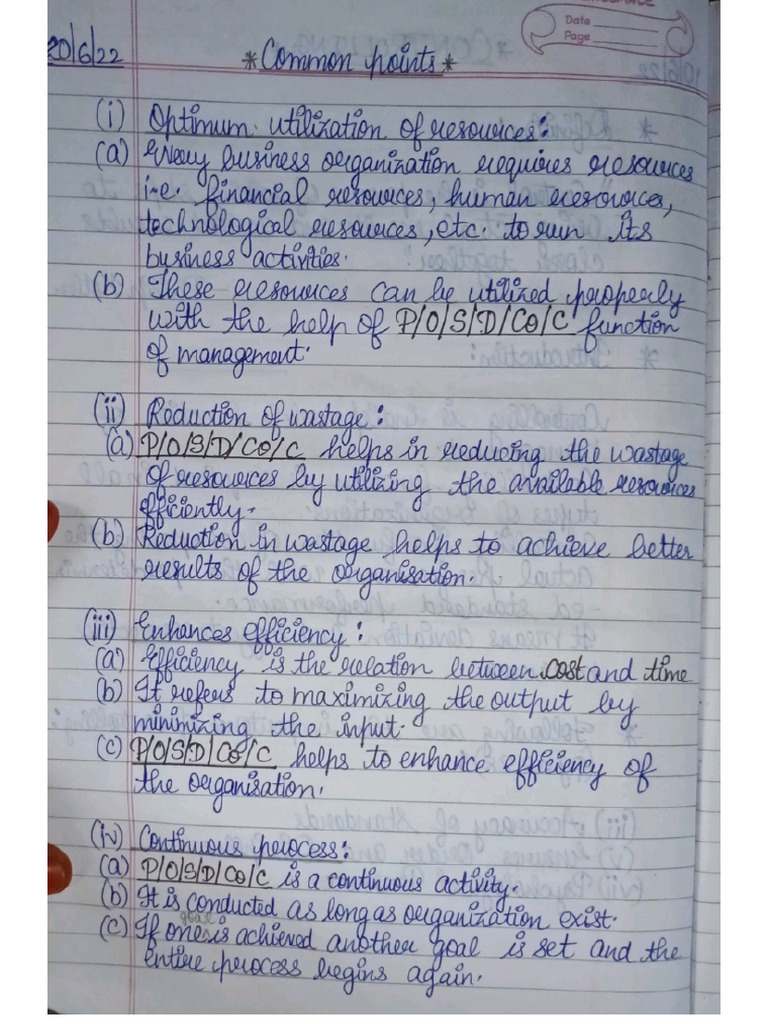 Date
Page
20/6/22 *Common points*
(i) Optimum utilization of resources:
(a) Every business organization requires resources
i.e. financial resources, human resources,
technological resources, etc. to run its
business activities.
(b) These resources can be utilized properly
with the help of P/O/S/D/Co/C function
of management.
(ii) Reduction of wastage:
(a) P/O/S/D/Co/C helps in reducing the wastage
of resources by utilizing the available resources
efficiently.
(b) Reduction in wastage helps to achieve better
results of the organisation.
(iii) Enhances efficiency:
(a) Efficiency is the relation between cost and time
(b) It refers to maximizing the output by
minimizing the input.
(c) P/O/S/D/Co/C helps to enhance efficiency of
the organisation.
(iv) Continuous process:
(a) P/O/S/D/Co/C is a continuous activity.
(b) It is conducted as long as organization exist.
(c) If one goal is achieved another goal is set and the
entire process begins again.